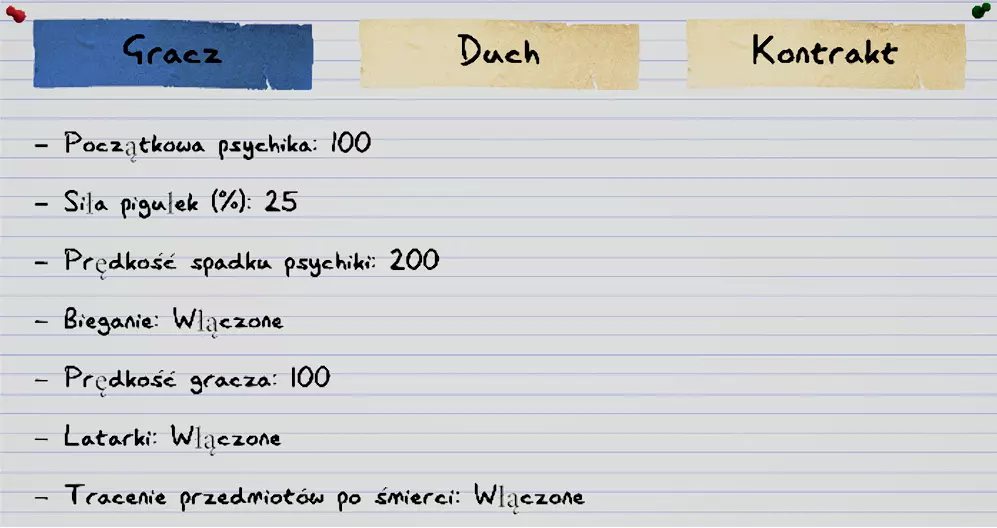 Gracz
Duch
Kontrakt
- Początkowa psychika: 100
- Siła pigułek (%): 25
- Prędkość spadku psychiki: 200
- Bieganie: Włączone
- Prędkość gracza: 100
- Latarki: Włączone
- Tracenie przedmiotów po śmierci: Włączone